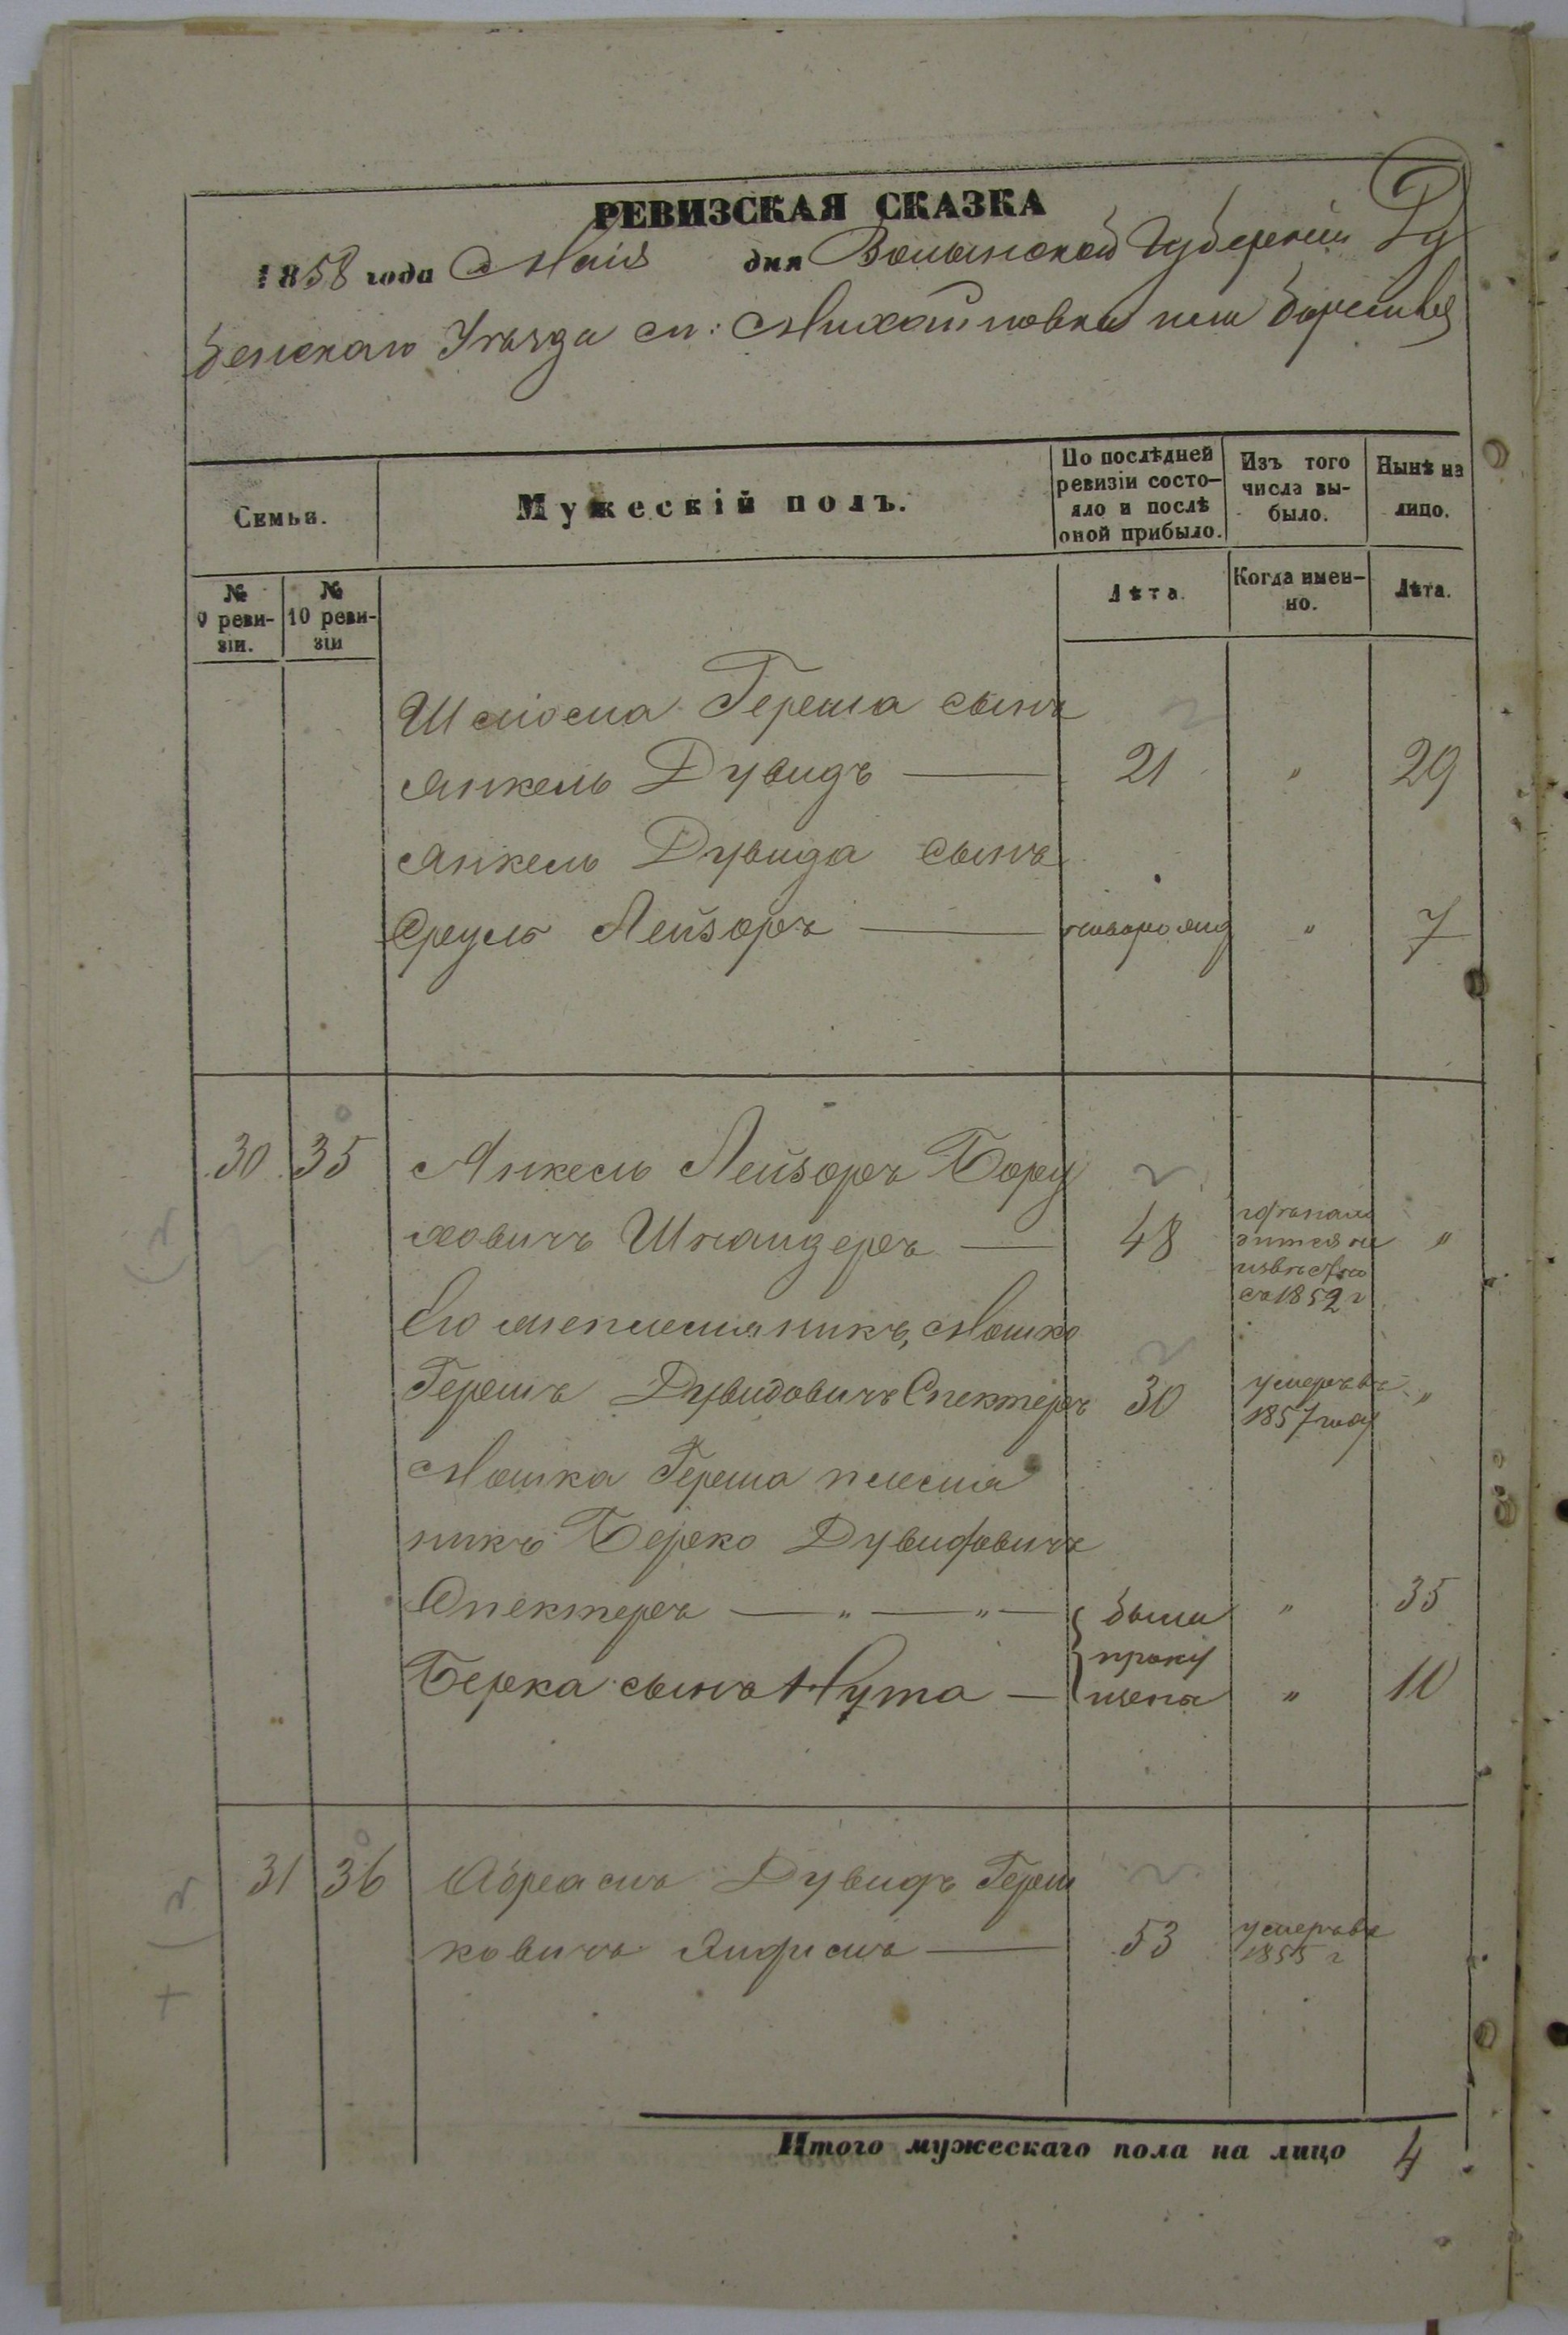 РЕВИЗСКАЯ СКАЗКА
1858 года Маія дня Волынской Губерніи Ду
бенскаго Уѣзда м: Михайловка или
Семьи.
Мужескій полъ.
По послѣдней ревизіи состо-
яло и послѣ
оной прибыло.
Изъ того
числа вы-
было.
Нынѣ на
лицо.
№
9 реви-
зіи.
№
10 реви-
зіи
Лѣта.
Когда имен-
но.
Лѣта.
Шліома Герша сынъ
Янкель Дувидъ — 21 " 29
Янкель Дувида сынъ
Сруль Лейзоръ — новорожд " 7
30 35 Янкель Лейзоръ Бору
ховичъ Шнайдеръ — 48 "
неизвѣстно
съ 1852 г
Его племянникъ, Мошко
Гершъ Дувидовичъ Спекторъ 30 умеръ въ 1857 году "
Мошка Герша племя
никъ Берко Дувидовичъ
Спекторъ — " — " — были " 35
пропу
Берка сынъ Нута — щены " 10
31 36 Абрамъ Дувидъ Герш
ковичъ — 53 умеръ въ 1855 г
Итого мужескаго пола на лицо 4